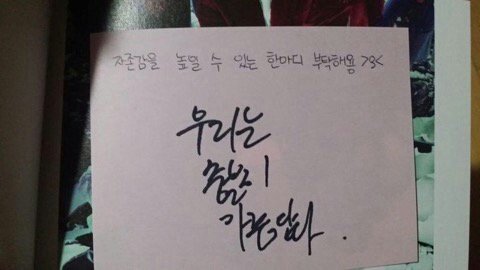 자존감을 높일 수 있는 한마디 부탁해용 >3<
우리는
충분히
가르침다.